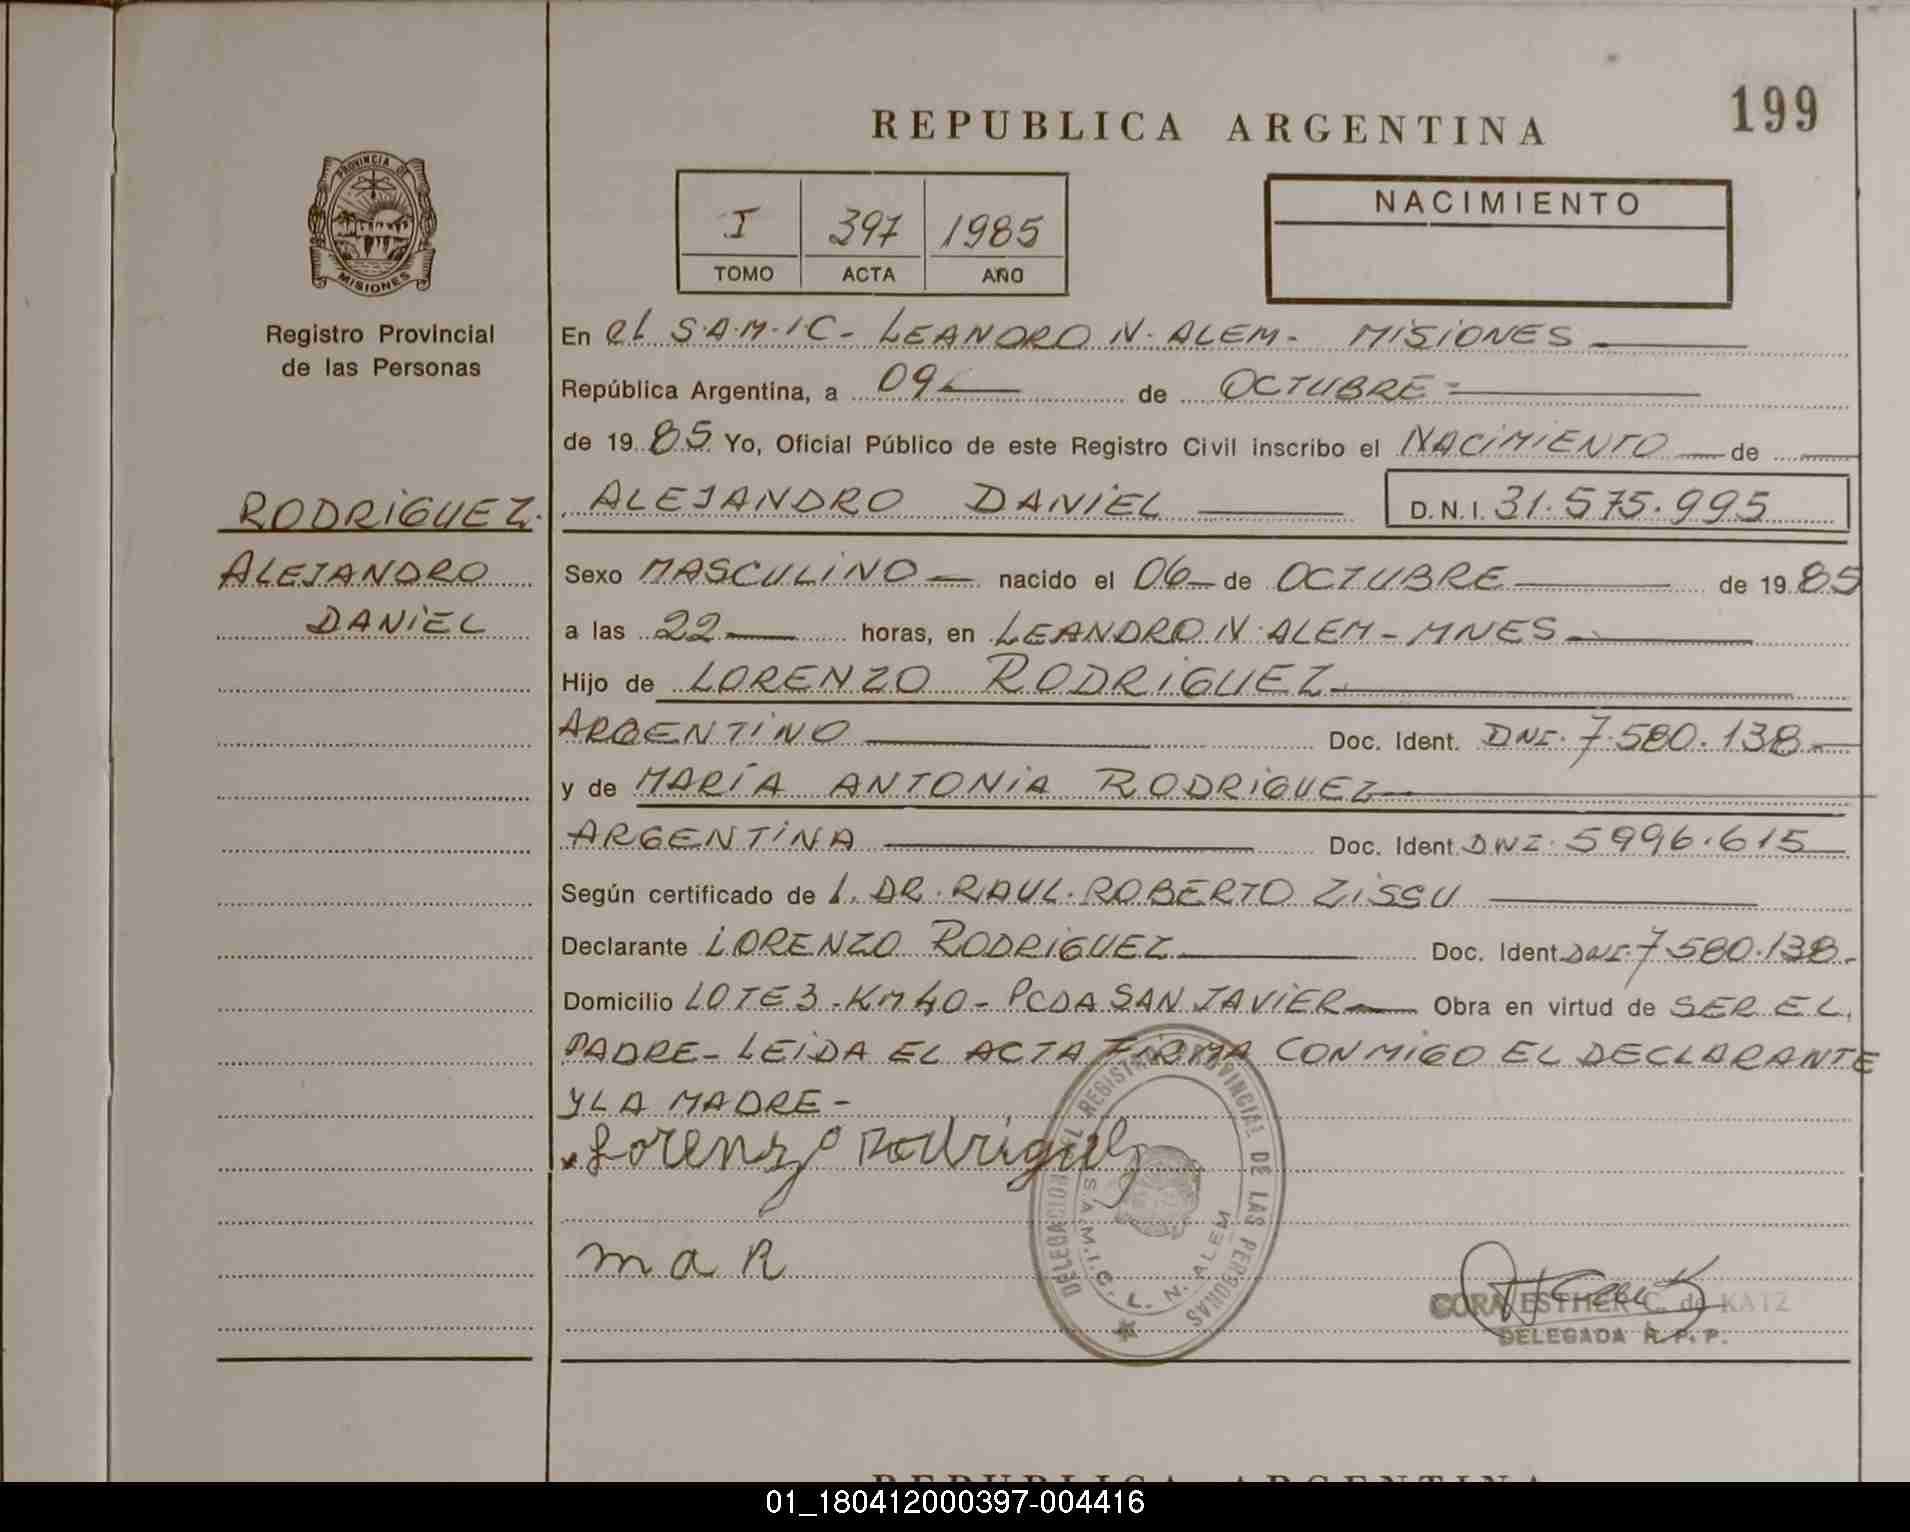 199
REPUBLICA ARGENTINA
PROVINCIA DE
MISIONES
Registro Provincial
de las Personas
I 397 1985
TOMO ACTA AÑO
NACIMIENTO
En el S.A.M.I.C - LEANDRO N. ALEM - MISIONES
República Argentina, a 09 de OCTUBRE
de 1985 Yo, Oficial Público de este Registro Civil inscribo el NACIMIENTO de
RODRIGUEZ. ALEJANDRO DANIEL D.N.I. 31.575.995
ALEJANDRO
DANIEL
Sexo MASCULINO nacido el 06 de OCTUBRE de 1985
a las 22 horas, en LEANDRO N. ALEM - MNES
Hijo de LORENZO RODRIGUEZ
ARGENTINO Doc. Ident. DNI. 7.580.138
y de MARÍA ANTONIA RODRIGUEZ
ARGENTINA Doc. Ident. DNI. 5996.615
Según certificado de L. DR. RAUL ROBERTO ZISSU
Declarante LORENZO RODRIGUEZ Doc. Ident. DNI. 7.580.138
Domicilio LOTE 3 - KM 40 - PCDA SAN JAVIER Obra en virtud de SER EL
PADRE - LEIDA EL ACTA FIRMA CONMIGO EL DECLARANTE
Y LA MADRE -
Lorenzo Rodriguez
DELEGACION DEL REGISTRO PROVINCIAL DE LAS PERSONAS
S.A.M.I.C. L. N. ALEM
m a R
CORA ESTHER C. de KATZ
DELEGADA R. P. P.
REPUBLICA ARGENTINA
01_180412000397-004416